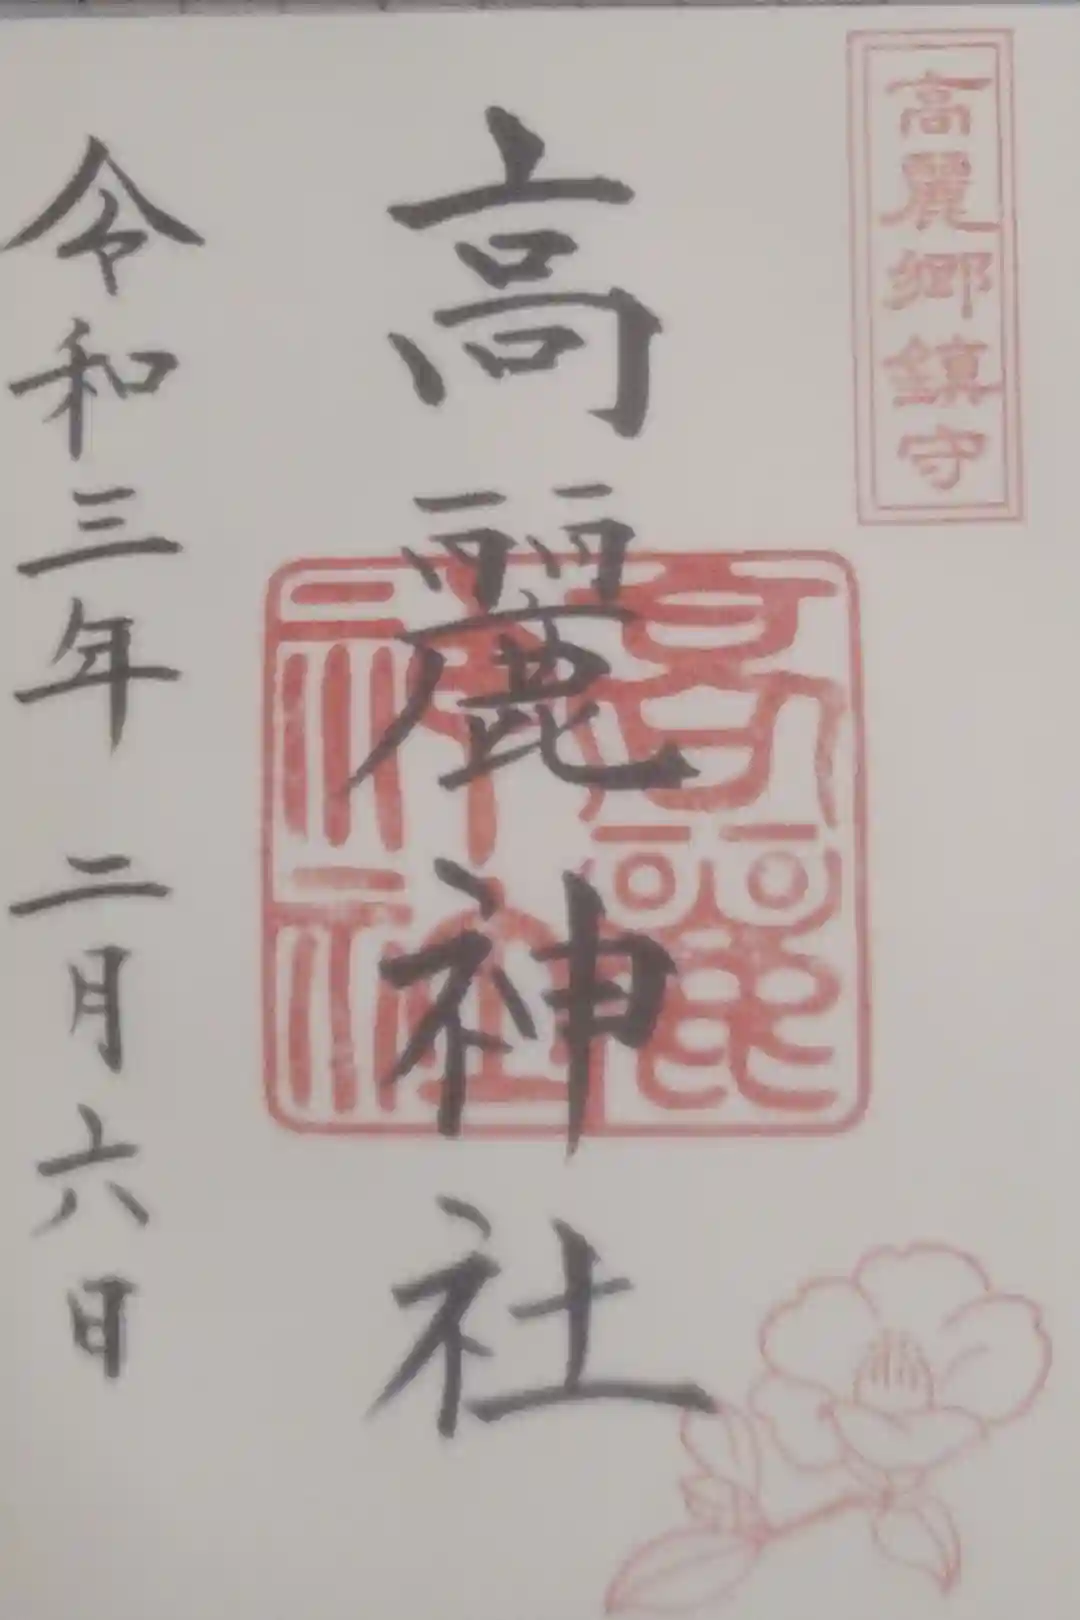 高麗郷鎮守
高麗神社
高麗神社
令和三年 二月六日